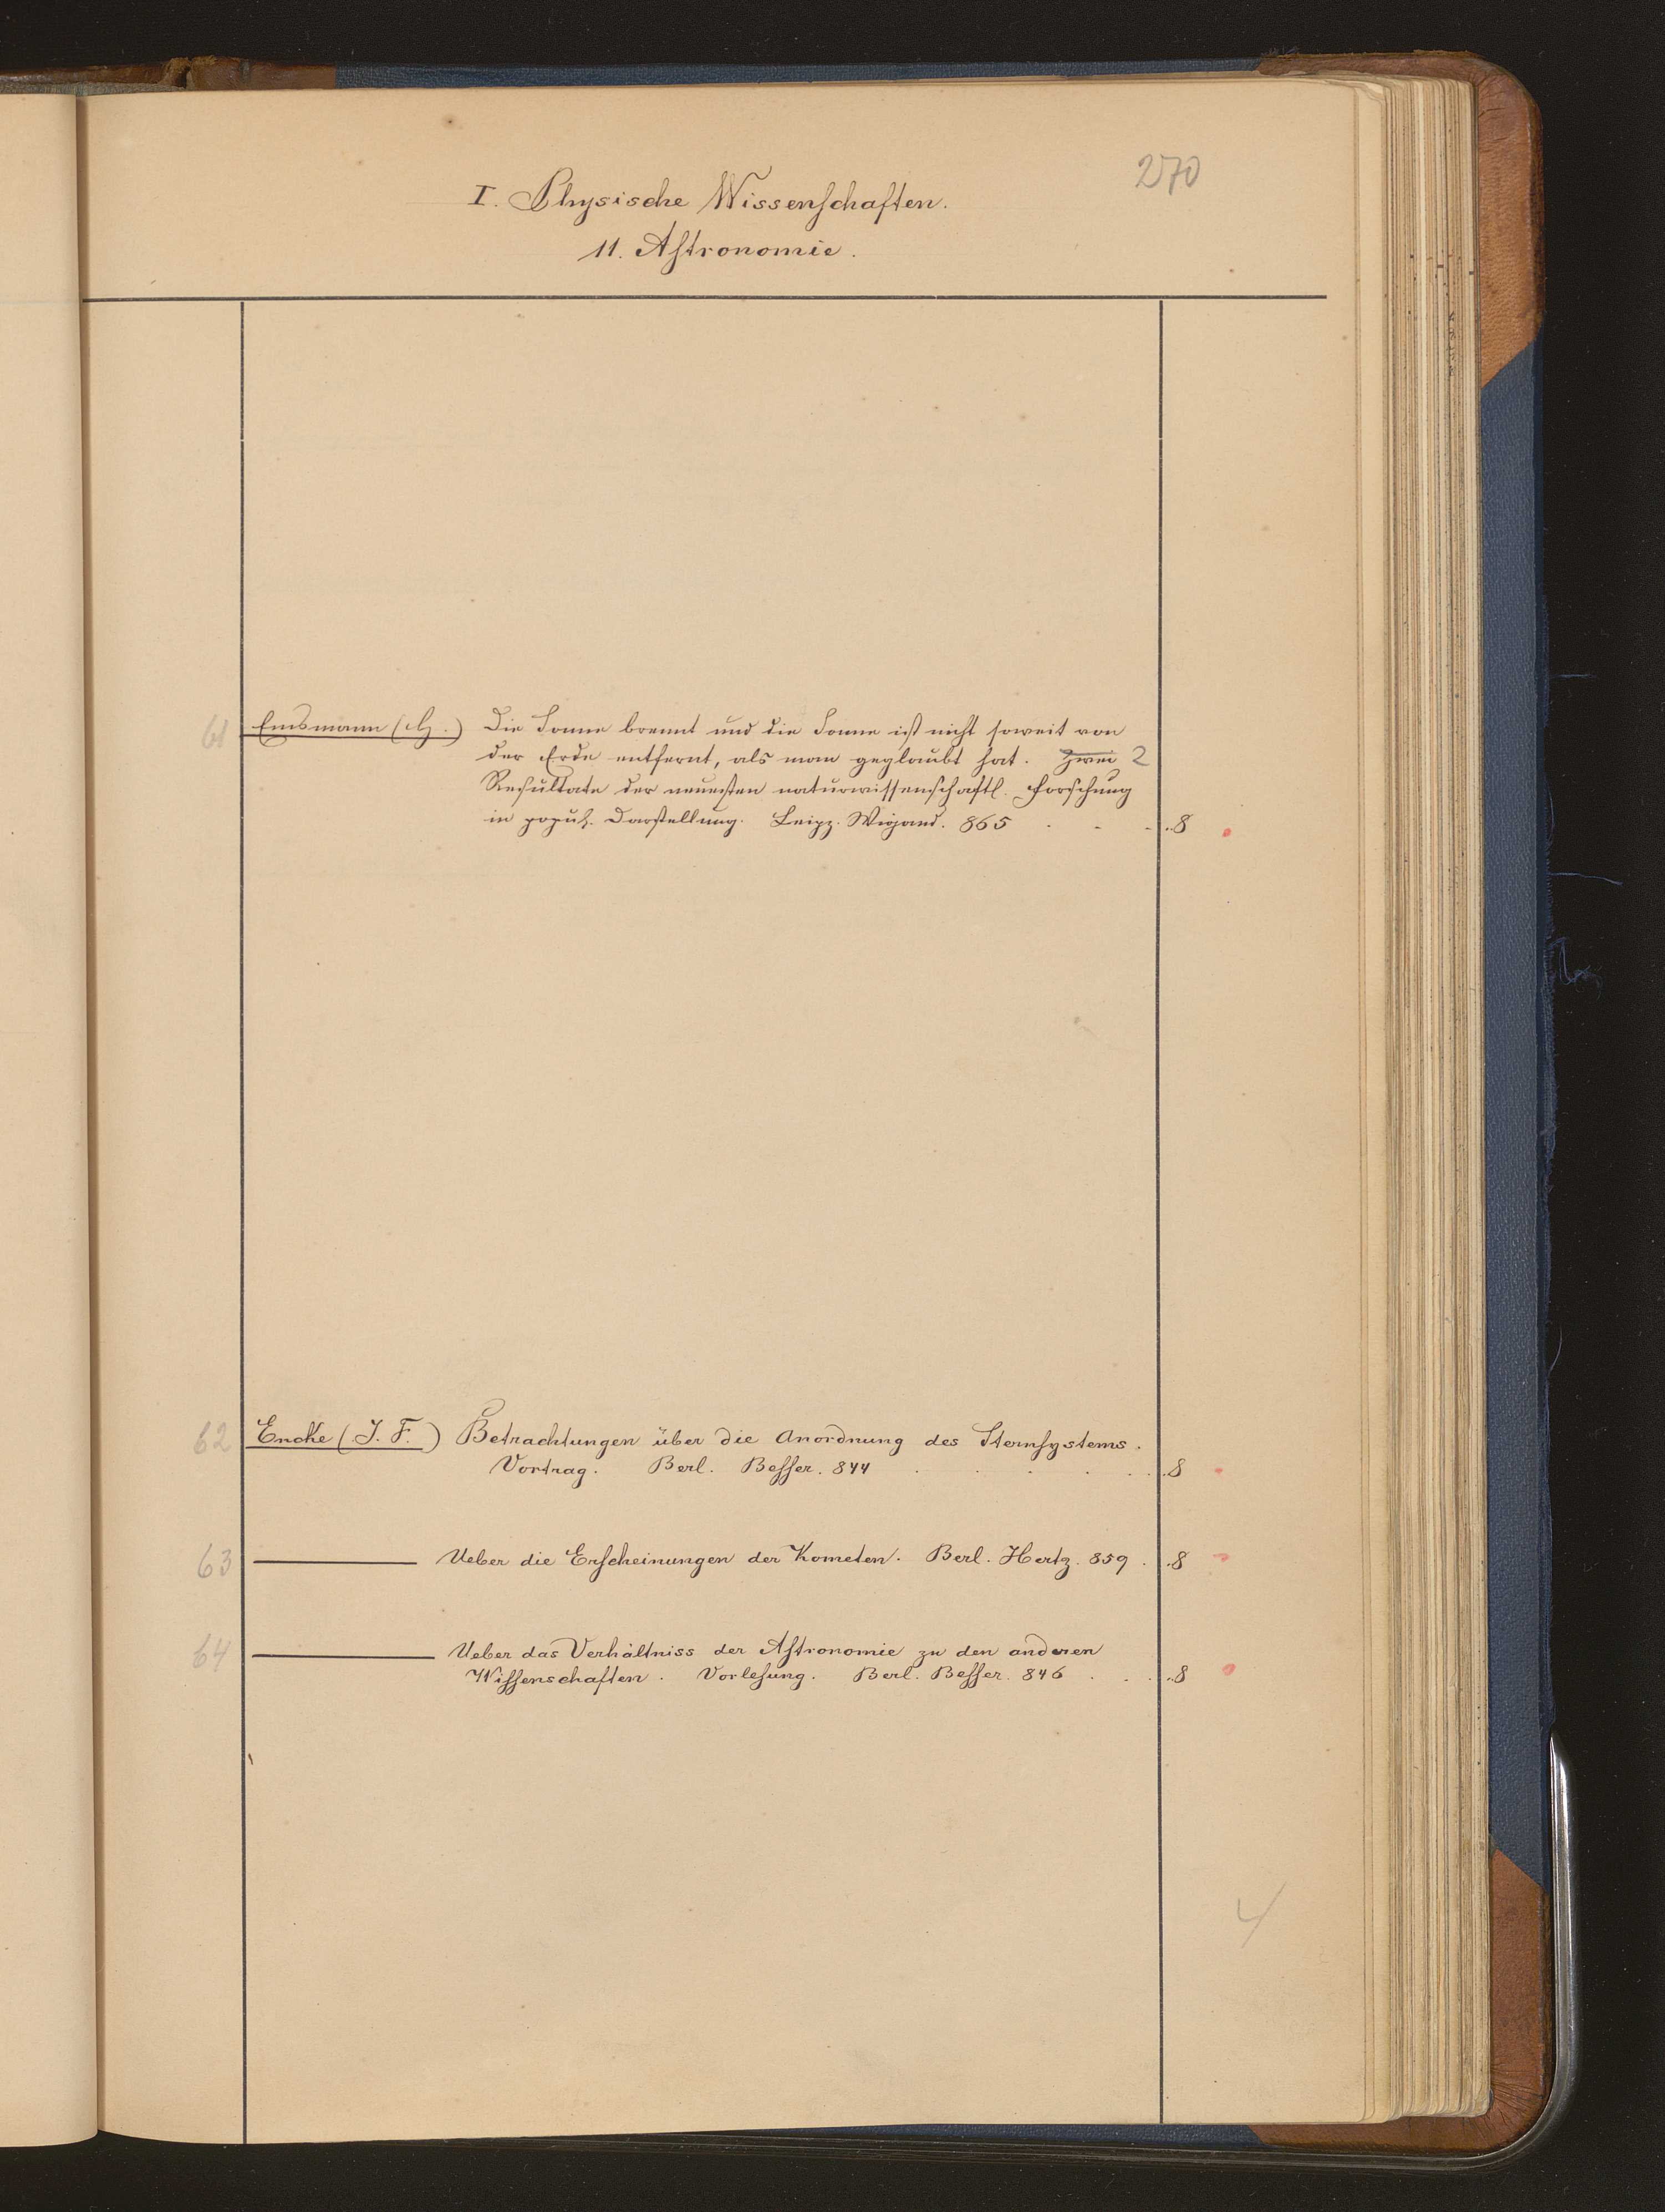 270
I. Physische Wissenschaften.
11. Astronomie.
61 Emsmann (H.) Die Sonne brennt und die Sonne ist nicht soweit von
der Erde entfernt, als man geglaubt hat. Zwei 2
Resultate der neuesten naturwissenschaftl. Forschung
in popul. Darstellung. Leipz. Wigand. 865 . . . . . 8
62 Encke (J. F.) Betrachtungen über die Anordnung des Sternsystems.
Vortrag. Berl. Besser. 844 . . . . . . . 8
63 ——— Ueber die Erscheinungen der Kometen. Berl. Hertz. 859 . . 8
64 ——— Ueber das Verhältniss der Astronomie zu den anderen
Wissenschaften. Vorlesung. Berl. Besser. 846 . . . . 8
4